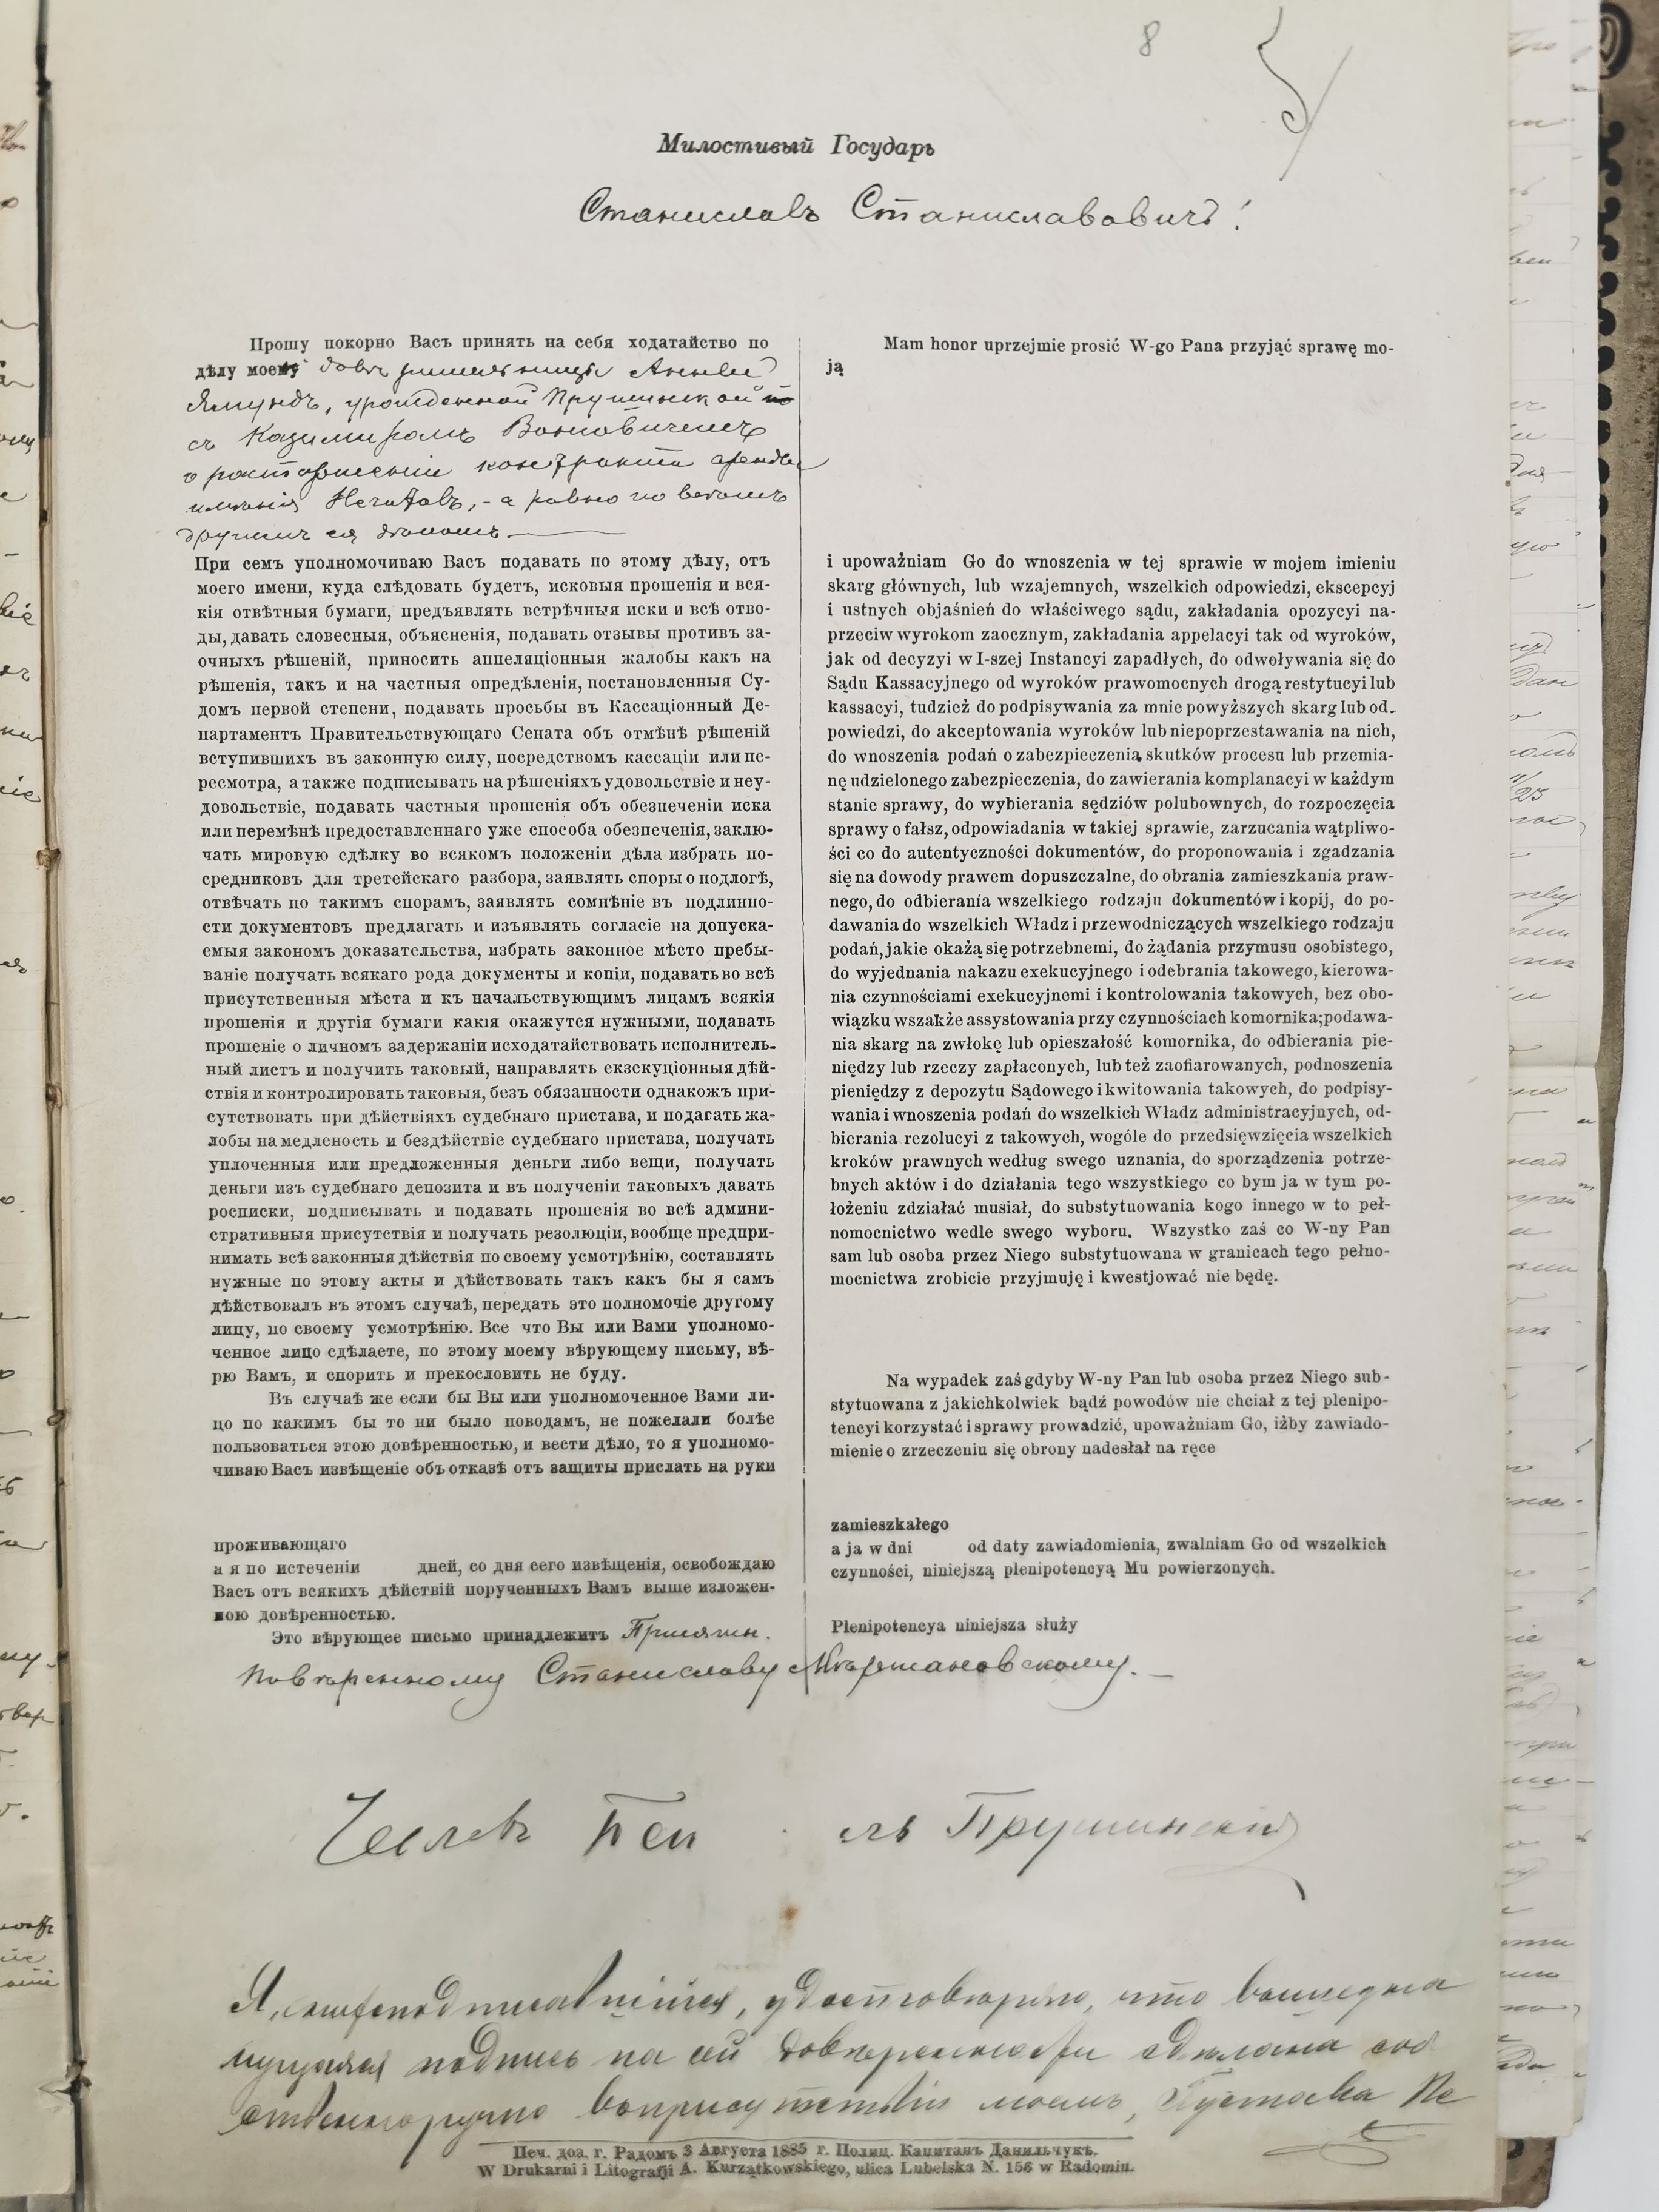 8
Милостивый Государь
Станиславъ Станиславовичъ!
Прошу покорно Васъ принять на себя ходатайство по
дѣлу моей довѣрительницы Анны
Ямундъ, урожденной Прушинской
съ Казимиромъ Войновичемъ
о расторженіи контракта аренды
имѣнія Нечатовъ, - а равно по всѣмъ
другимъ ея дѣламъ.
При семъ уполномочиваю Васъ подавать по этому дѣлу, отъ
моего имени, куда слѣдовать будетъ, исковыя прошенія и вся-
кія отвѣтныя бумаги, предъявлять встрѣчныя иски и всѣ отво-
ды, давать словесныя, объясненія, подавать отзывы противъ за-
очныхъ рѣшеній, приносить аппеляціонныя жалобы какъ на
рѣшенія, такъ и на частныя опредѣленія, постановленныя Су-
домъ первой степени, подавать просьбы въ Кассаціонный Де-
партаментъ Правительствующаго Сената объ отмѣнѣ рѣшеній
вступившихъ въ законную силу, посредствомъ кассаціи или пе-
ресмотра, а также подписывать на рѣшеніяхъ удовольствіе и неу-
довольствіе, подавать частныя прошенія объ обезпеченіи иска
или перемѣнѣ предоставленнаго уже способа обезпеченія, заклю-
чать мировую сдѣлку во всякомъ положеніи дѣла избрать по-
средниковъ для третейскаго разбора, заявлять споры о подлогѣ,
отвѣчать по такимъ спорамъ, заявлять сомнѣніе въ подлинно-
сти документовъ предлагать и изъявлять согласіе на допуска-
емыя закономъ доказательства, избрать законное мѣсто пребы-
ваніе получать всякаго рода документы и копіи, подавать во всѣ
присутственныя мѣста и къ начальствующимъ лицамъ всякія
прошенія и другія бумаги какія окажутся нужными, подавать
прошеніе о личномъ задержаніи исходатайствовать исполнитель-
ный листъ и получить таковый, направлять екзекуціонныя дѣй-
ствія и контролировать таковыя, безъ обязанности однакожъ при-
сутствовать при дѣйствіяхъ судебнаго пристава, и подагать жа-
лобы на медленость и бездѣйствіе судебнаго пристава, получать
уплоченныя или предложенныя деньги либо вещи, получать
деньги изъ судебнаго депозита и въ полученіи таковыхъ давать
росписки, подписывать и подавать прошенія во всѣ админи-
стративныя присутствія и получать резолюціи, вообще предпри-
нимать всѣ законныя дѣйствія по своему усмотрѣнію, составлять
нужные по этому акты и дѣйствовать такъ какъ бы я самъ
дѣйствовалъ въ этомъ случаѣ, передать это полномочіе другому
лицу, по своему усмотрѣнію. Все что Вы или Вами уполномо-
ченное лицо сдѣлаете, по этому моему вѣрующему письму, вѣ-
рю Вамъ, и спорить и прекословить не буду.
Въ случаѣ же если бы Вы или уполномоченное Вами ли-
цо по какимъ бы то ни было поводамъ, не пожелали болѣе
пользоваться этою довѣренностью, и вести дѣло, то я уполномо-
чиваю Васъ извѣщеніе объ отказѣ отъ защиты прислать на руки
проживающаго
а я по истеченіи дней, со дня сего извѣщенія, освобождаю
Васъ отъ всякихъ дѣйствій порученныхъ Вамъ выше изложен-
ною довѣренностью.
Это вѣрующее письмо принадлежитъ Присяжн.
Mam honor uprzejmie prosić W-go Pana przyjąć sprawę mo-
ją
i upoważniam Go do wnoszenia w tej sprawie w mojem imieniu
skarg głównych, lub wzajemnych, wszelkich odpowiedzi, ekscepcyj
i ustnych objaśnień do właściwego sądu, zakładania opozycyi na-
przeciw wyrokom zaocznym, zakładania appelacyi tak od wyroków,
jak od decyzyi w I-szej Instancyi zapadłych, do odwoływania się do
Sądu Kassacyjnego od wyroków prawomocnych drogą restytucyi lub
kassacyi, tudzież do podpisywania za mnie powyższych skarg lub od-
powiedzi, do akceptowania wyroków lub niepoprzestawania na nich,
do wnoszenia podań o zabezpieczenia skutków procesu lub przemia-
nę udzielonego zabezpieczenia, do zawierania komplanacyi w każdym
stanie sprawy, do wybierania sędziów polubownych, do rozpoczęcia
sprawy o fałsz, odpowiadania w takiej sprawie, zarzucania wątpliwo-
ści co do autentyczności dokumentów, do proponowania i zgadzania
się na dowody prawem dopuszczalne, do obrania zamieszkania praw-
nego, do odbierania wszelkiego rodzaju dokumentów i kopij, do po-
dawania do wszelkich Władz i przewodniczących wszelkiego rodzaju
podań, jakie okażą się potrzebnemi, do żądania przymusu osobistego,
do wyjednania nakazu exekucyjnego i odebrania takowego, kierowa-
nia czynnościami exekucyjnemi i kontrolowania takowych, bez obo-
wiązku wszakże assystowania przy czynnościach komornika; podawa-
nia skarg na zwłokę lub opieszałość komornika, do odbierania pie-
niędzy lub rzeczy zapłaconych, lub też zaofiarowanych, podnoszenia
pieniędzy z depozytu Sądowego i kwitowania takowych, do podpisy-
wania i wnoszenia podań do wszelkich Władz administracyjnych, od-
bierania rezolucyi z takowych, wogóle do przedsięwzięcia wszelkich
kroków prawnych według swego uznania, do sporządzenia potrze-
bnych aktów i do działania tego wszystkiego co bym ja w tym po-
łożeniu zdziałać musiał, do substytuowania kogo innego w to peł-
nomocnictwo wedle swego wyboru. Wszystko zaś co W-ny Pan
sam lub osoba przez Niego substytuowana w granicach tego pełno-
mocnictwa zrobicie przyjmuję i kwestjować nie będę.
Na wypadek zaś gdyby W-ny Pan lub osoba przez Niego sub-
stytuowana z jakichkolwiek bądź powodów nie chciał z tej plenipo-
tencyi korzystać i sprawy prowadzić, upoważniam Go, iżby zawiado-
mienie o zrzeczeniu się obrony nadesłał na ręce
zamieszkałego
a ja w dni od daty zawiadomienia, zwalniam Go od wszelkich
czynności, niniejszą plenipotencyą Mu powierzonych.
Plenipotencya niniejsza służy
Повѣренному Станиславу
Прушинскій
Я, нижеподписавшійся, удостовѣряю, что вышеука
зующаяся подпись на сей довѣренности сдѣлана соб
ственноручно въ присутствіи моемъ, Густава
Печ. доз. г. Радомъ 3 Августа 1885 г. Полиц. Капитанъ Данильчукъ.
W Drukarni i Litografji A. Kurzątkowskiego, ulica Lubelska N. 156 w Radomiu.